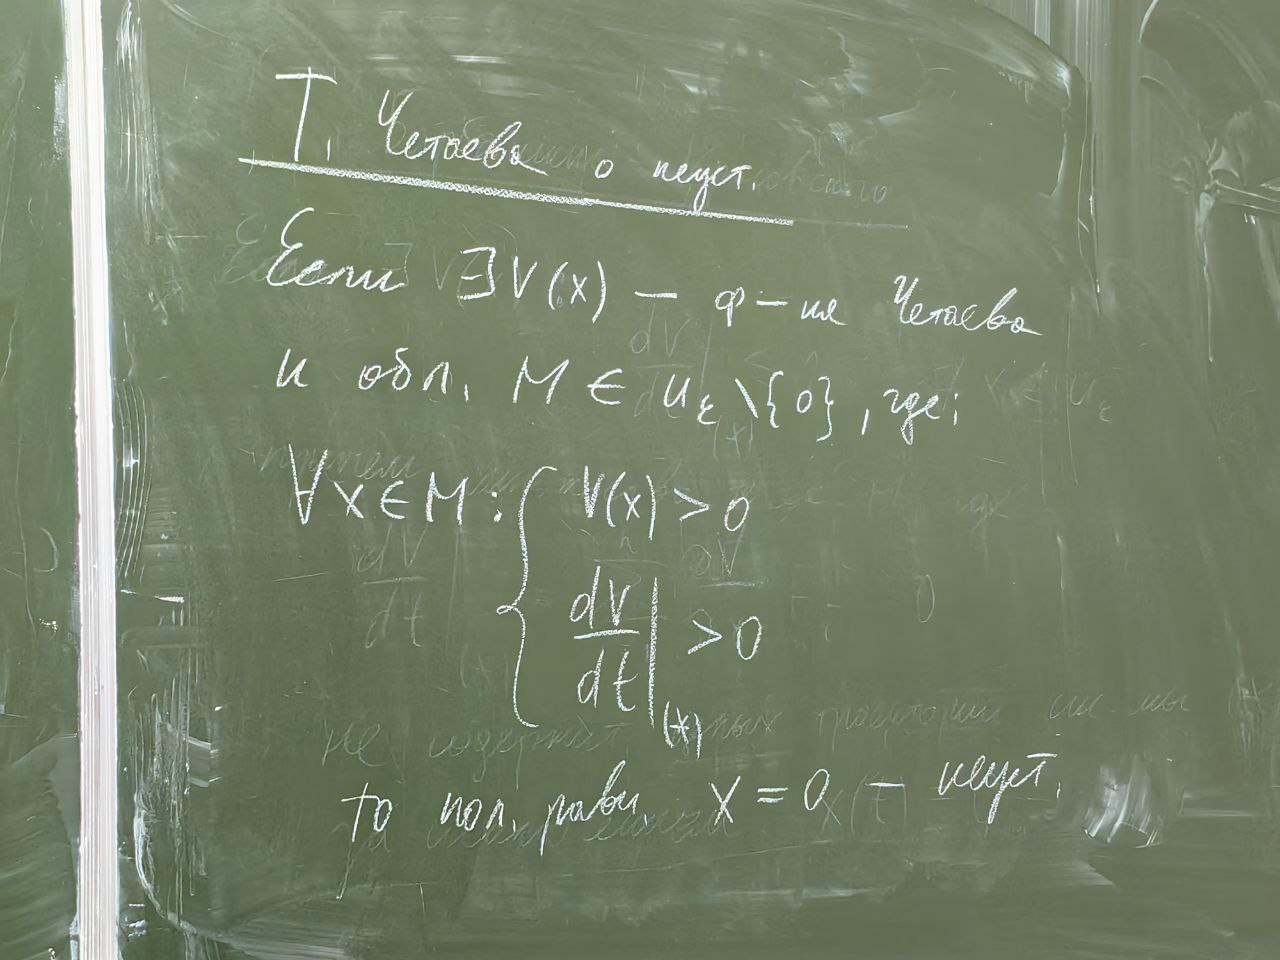 Т. Четаева о неуст.
Если ∃ V(x) – ф-ия Четаева
и обл. M ∈ U_ε \ {0}, где:
∀ x ∈ M : { V(x) > 0
dV/dt |_(*) > 0
то пол. равн. x = 0 – неуст.